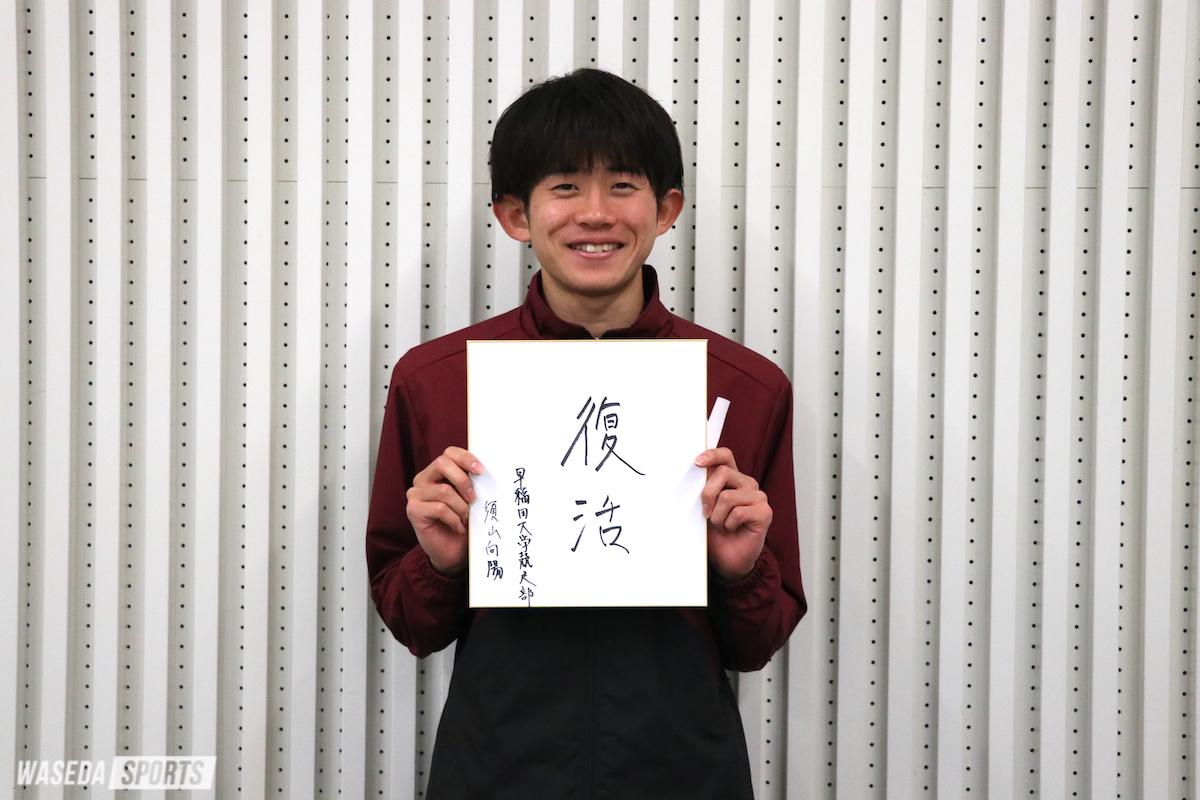 復活
早稲田大学競走部
須山向陽
WASEDA SPORTS